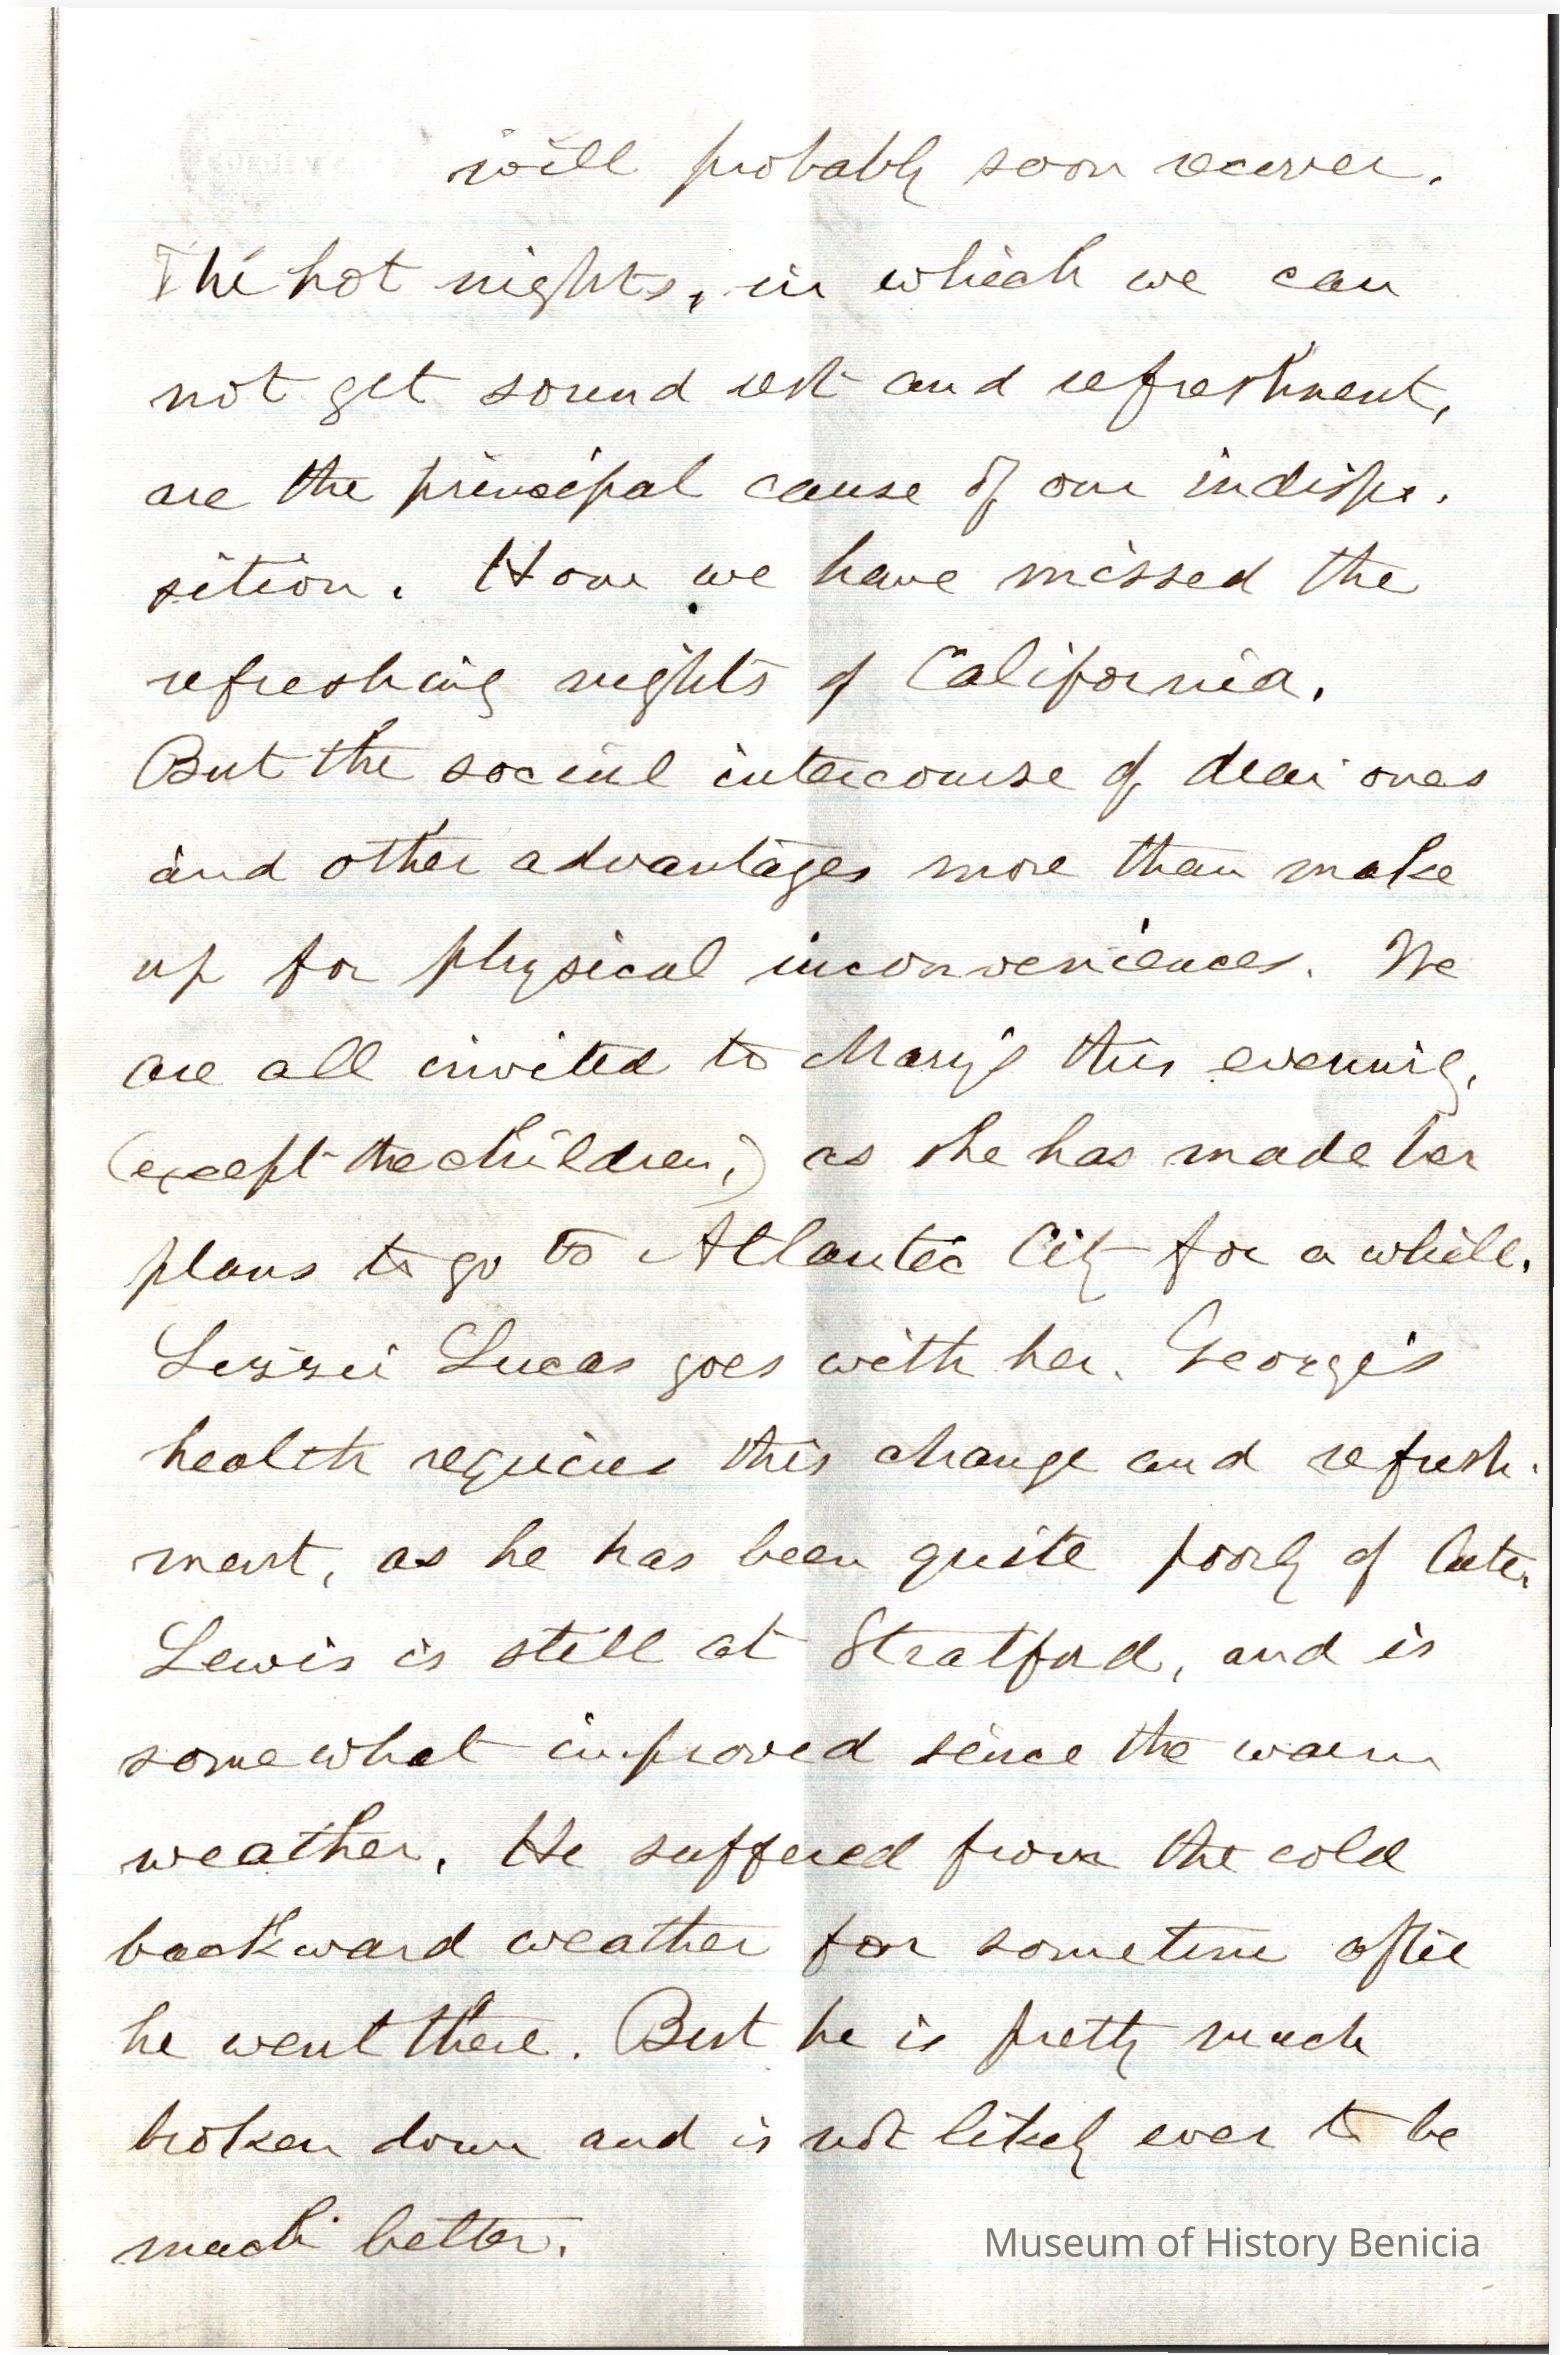 will probably soon recover.
The hot nights, in which we can
not get sound rest and refreshment,
are the principal cause of our indispo-
sition. How we have missed the
refreshing nights of California.
But the social intercourse of dear ones
and other advantages more than make
up for physical inconveniences. We
are all invited to Mary's this evening,
(except the children,) as she has made her
plans to go to Atlantic City for a while.
Lizzie Lucas goes with her. George's
health requires this change and refresh-
ment, as he has been quite poorly of late.
Lewis is still at Stratford, and is
somewhat improved since the warm
weather. He suffered from the cold
backward weather for sometime after
he went there. But he is pretty much
broken down and is not likely ever to be
much better.
Museum of History Benicia